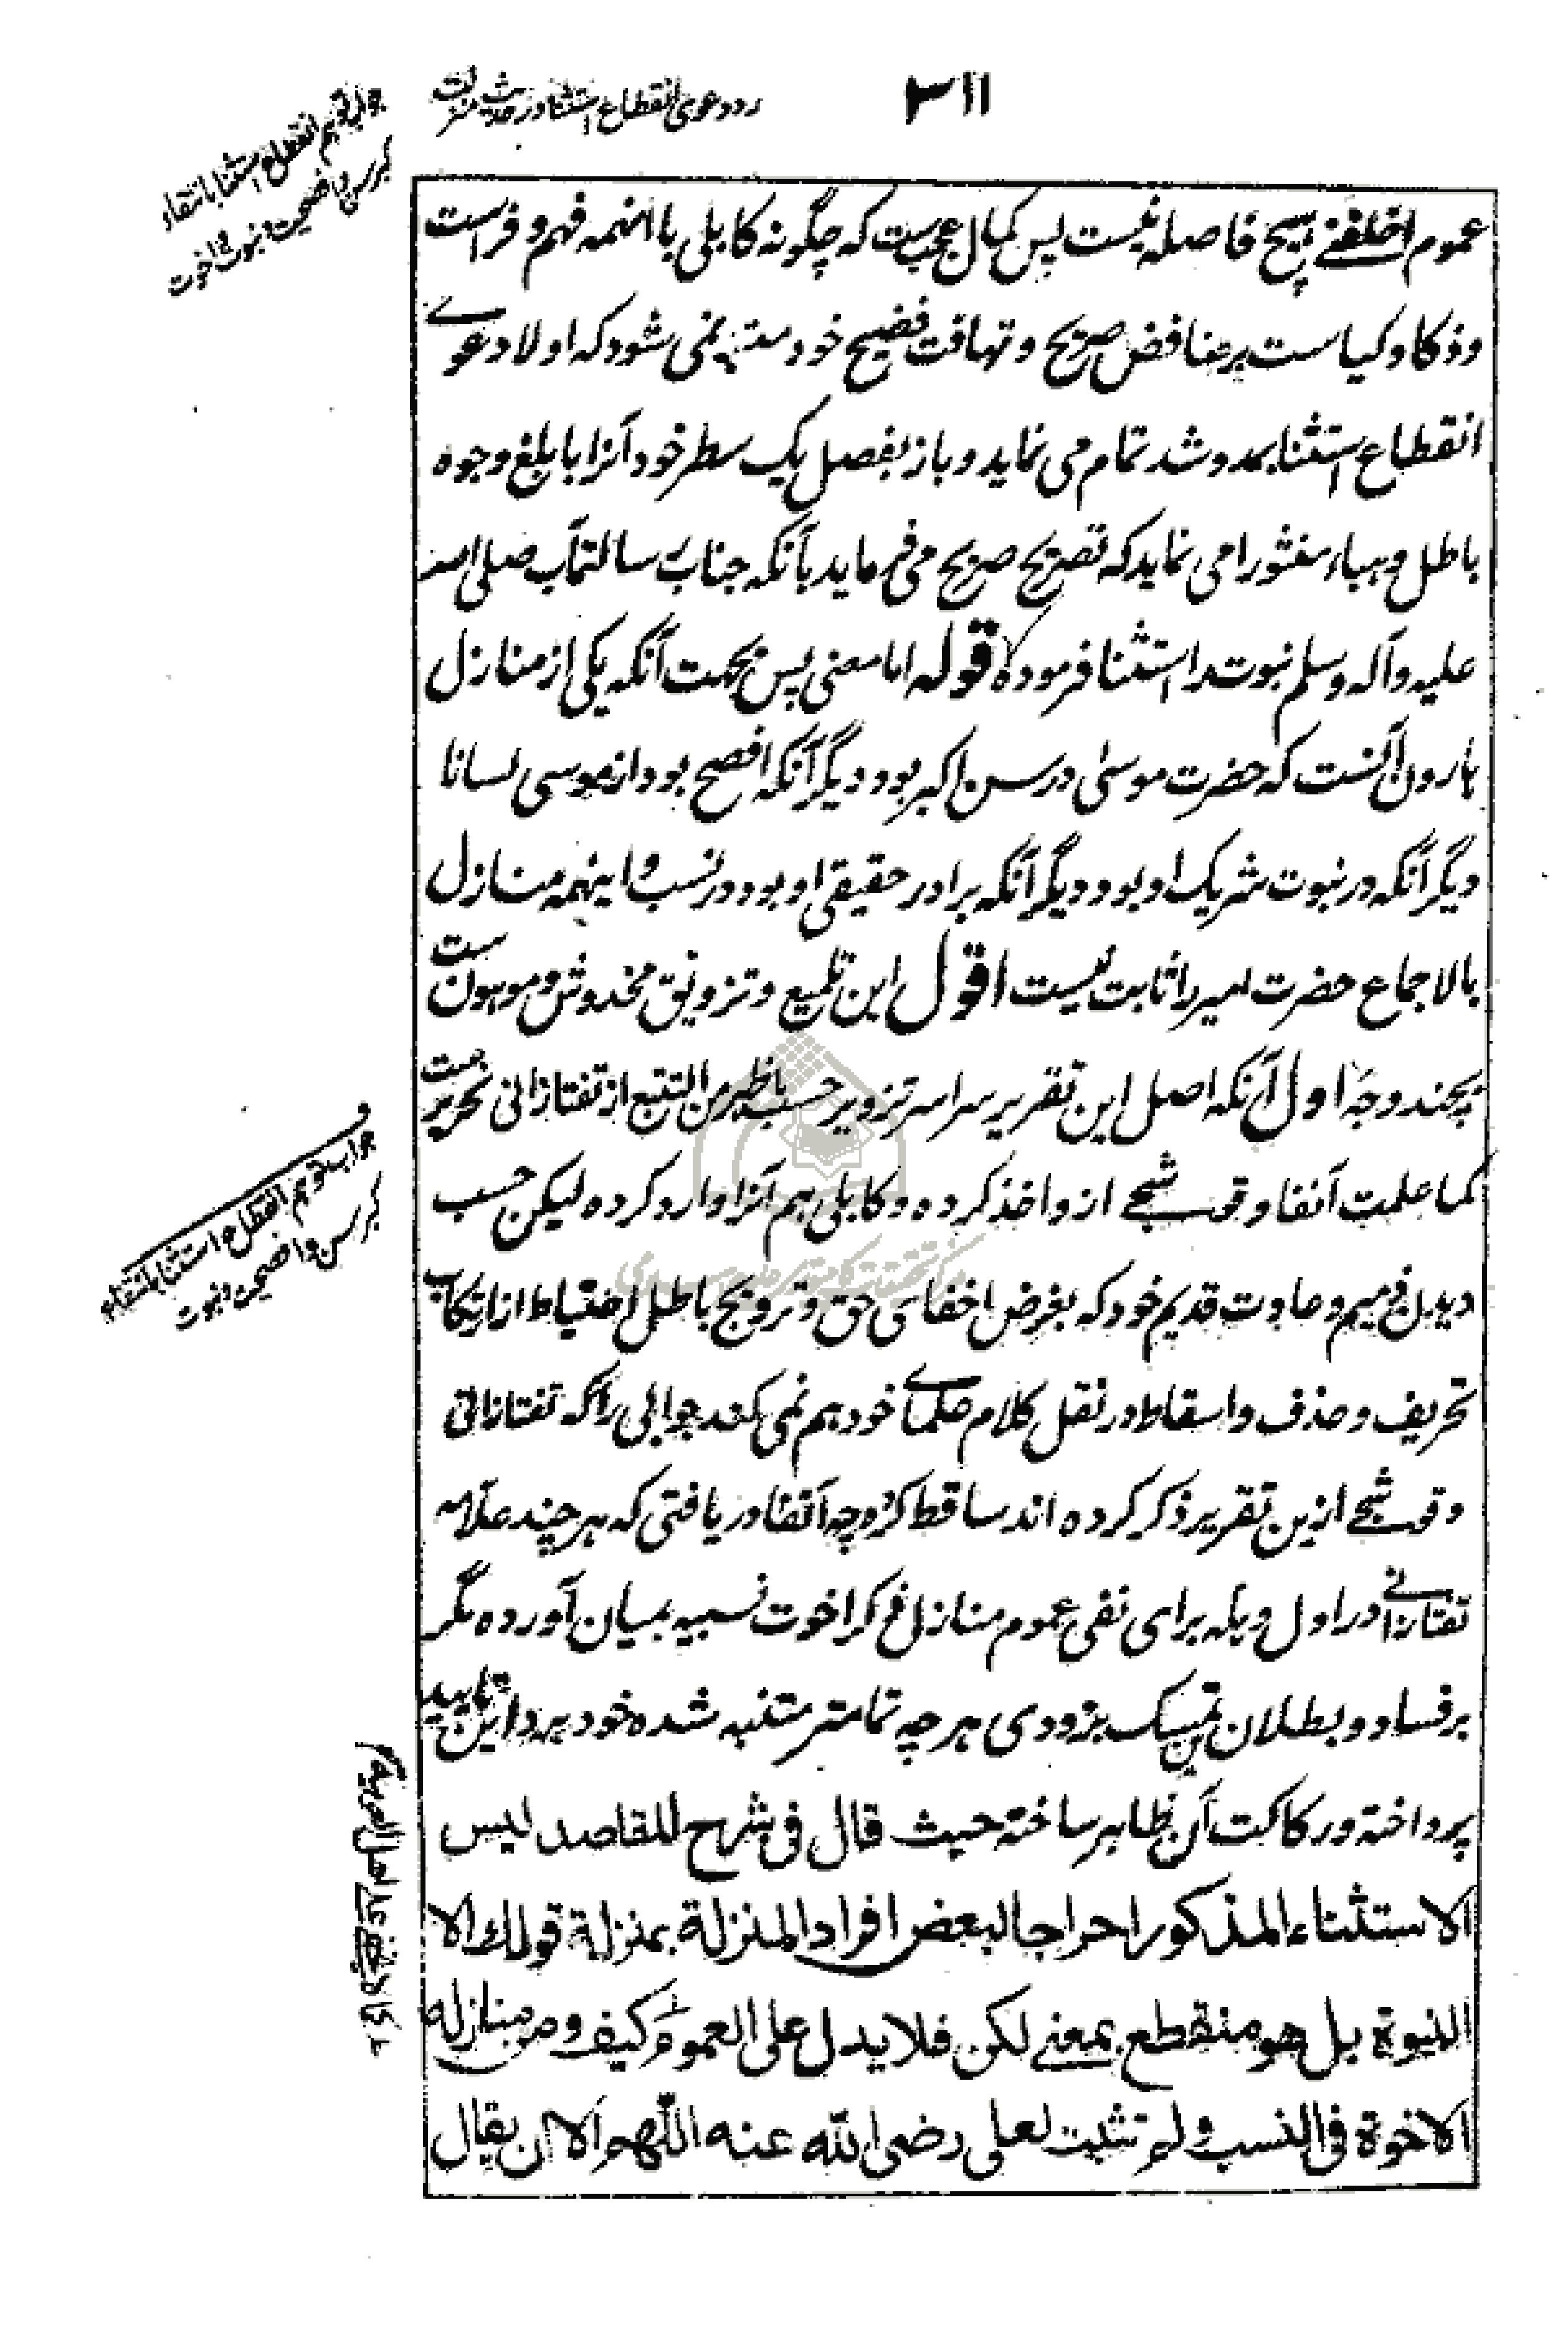 ۳۱۱
رد دعوی انقطاع استثنا در حدیث منزلت
جواب توهم انقطاع استثنا بانتفاء
کبر سن و افصحیت و نبوت و اخوت
عموم اخلفنے ہیچ فاصلہ نیست پس کمال عجب ست کہ چگونہ کابلی با اینہمہ فہم و فراست
و ذکا و کیاست بر مناقض صریح و تہافت فضیح خود متنبہ نمی شود کہ اولا دعوے
انقطاع استثنا بمد و شد تمام می نماید و باز بفصل یک سطر خود آنرا بابلغ وجوہ
باطل و ہباء منثورا می نماید کہ تصریح صریح می فرماید بآنکہ جناب رسالتمآب صلی اللہ
علیہ و آلہ وسلم نبوت را استثنا فرمودہ قولہ اما معنی پس بجہت آنکہ یکی از منازل
ہارون آنست کہ حضرت موسیٰ در سن اکبر بود و دیگر آنکہ افصح بود از موسی لسانا
دیگر آنکہ در نبوت شریک او بود و دیگر آنکہ برادر حقیقی او بود در نسب و اینہمہ منازل
بالاجماع حضرت امیر را ثابت نیست اقول این تلمیع و تزویق مخدوش و موہون ست
بچند وجہ اول آنکہ اصل این تقریر سراسر تزویر حسب ما ظہر من التتبع از تفتازانی نحریر ست
کما علمت آنفا و قوشجے ازو اخذ کردہ و کابلی ہم آنرا وارد کردہ لیکن حسب
دیدن ذمیم و عادت قدیم خود کہ بغرض اخفای حق و ترویج باطل احتیاط از ارتکاب
تحریف و حذف و اسقاط در نقل کلام علماے خود ہم نمی کند جوابی را کہ تفتازانی
و قوشجے ازین تقریر ذکر کردہ اند ساقط کردہ چہ آنفا دریافتی کہ ہر چند علامہ
تفتازانے در اول وہلہ برای نفی عموم منازل ذکر اخوت نسبیہ بمیان آوردہ مگر
بر فساد و بطلان این تمسک بزودی ہر چہ تمامتر متنبہ شدہ خود برد این تایید
پرداختہ و رکاکت آن ظاہر ساختہ حیث قال فی شرح المقاصد لیس
الاستثناء المذکور اخراجا لبعض افراد المنزلة بمنزلة قولك الا
النبوة بل هو منقطع بمعنے لکن فلا یدل علی العموم کیف و من منازله
الاخوة فی النسب و لم تثبت لعلی رضی الله عنه اللهم الا ان یقال
جواب توہم انقطاع استثنا بانتفاء
کبر سن و افصحیت و نبوت